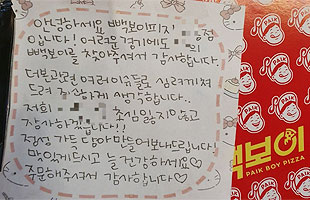 안녕하세요 빽보이피자 점
입니다! 어려운경기에도 의
빽보이를 찾아주셔서 감사합니다.
더본관련 여러이슈들로 심려끼쳐
드려 죄송하게 생각합니다..
저희 초심잃지않고
장사하겠습니다!!
정성 가득 담아만들어보내드립니다!
맛있게드시고 늘 건강하세요♡
주문해주셔서 감사합니다♡
PAIK
PAIK
PAIK
빽보이
PAIK BOY PIZZA